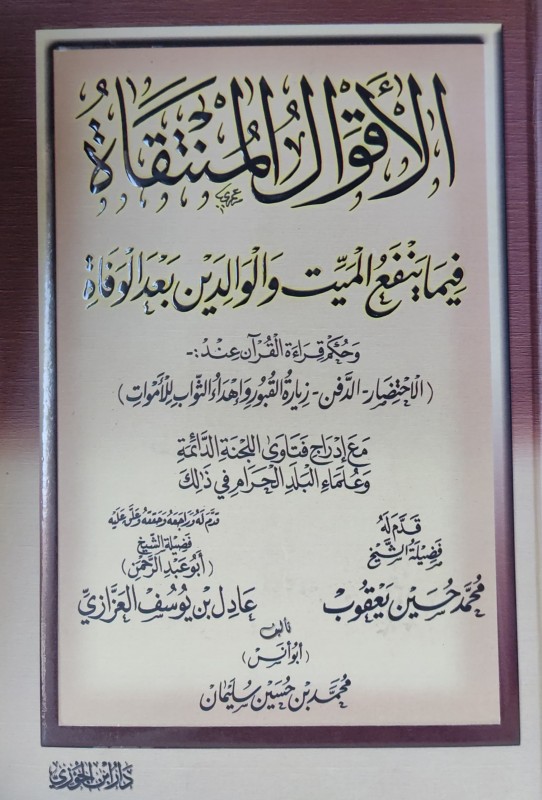 الأَقْوَالُ المُنْتَقَاةُ
فِيمَا يَنْفَعُ الْمَيِّتَ وَالْوَالِدَيْنِ بَعْدَ الْوَفَاةِ
وَحُكْمُ قِرَاءَةِ الْقُرْآنِ عِنْدَ :-
(الاحْتِضَارِ - الدَّفْنِ - زِيَارَةُ الْقُبُورِ وَإِهْدَاءُ الثَّوَابِ لِلأَمْوَاتِ)
مَعَ إِدْرَاجِ فَتَاوَى اللَّجْنَةِ الدَّائِمَةِ
وَعُلَمَاءِ الْبَلَدِ الْحَرَامِ فِي ذَلِكَ
قَدَّمَ لَهُ
فَضِيلَةُ الشَّيْخِ
مُحَمَّد حُسَيْن يَعْقُوب
قَدَّمَ لَهُ وَرَاجَعَهُ وَحَقَّقَهُ وَعَلَّقَ عَلَيْهِ
فَضِيلَةُ الشَّيْخِ
(أَبُو عَبْدِ الرَّحْمَنِ)
عَادِل بْن يُوسُف العَزَازِيّ
تأليف
(أبو أنس)
مُحَمَّد بْن حُسَيْن سُلَيْمَان
دَارُ ابْنِ الْجَوْزِيّ